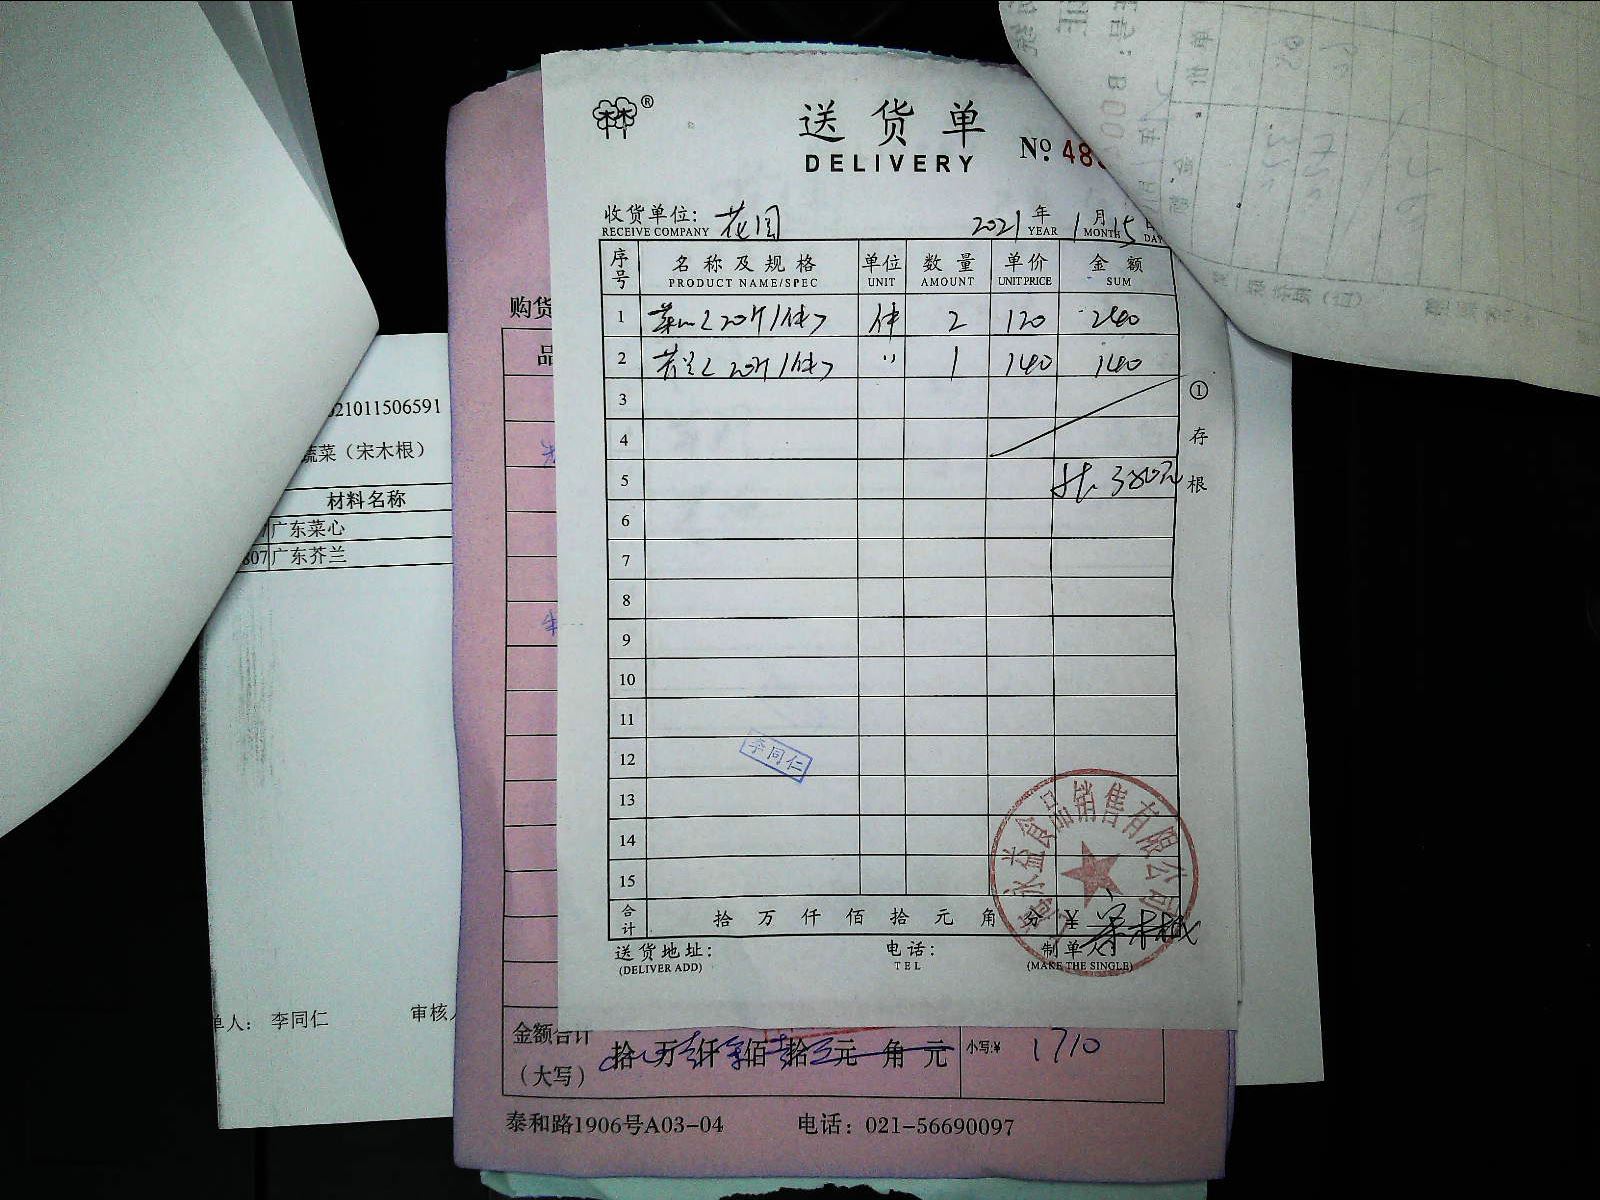 送货单
DELIVERY
№ 48
收货单位: 花园 2021年1月15日
RECEIVE COMPANY YEAR MONTH DAY
序号 名称及规格 单位 数量 单价 金额
PRODUCT NAME/SPEC UNIT AMOUNT UNIT PRICE SUM
1 菜心(20斤/件) 件 2 120 240
2 芥兰(20斤/件) 〃 1 140 140
3
4
5 共380元
6
7
8
9
10
11
12
13
14
15
合计 拾万仟佰拾元角分 ¥
送货地址: 电话: 制单人:
(DELIVER ADD) TEL (MAKE THE SINGLE)
① 存根
李同仁
永益食品销售有限公司
购货
品
金额合计
(大写)
拾万仟佰拾元角元
小写:¥ 1710
泰和路1906号A03-04 电话: 021-56690097
021011506591
蔬菜(宋木根)
材料名称
广东菜心
807 广东芥兰
单人: 李同仁 审核人